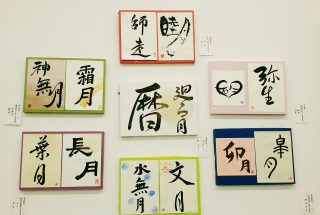 師走
睦月
神無月
霜月
暦
弥生
葉月
長月
水無月
文月
卯月
皐月